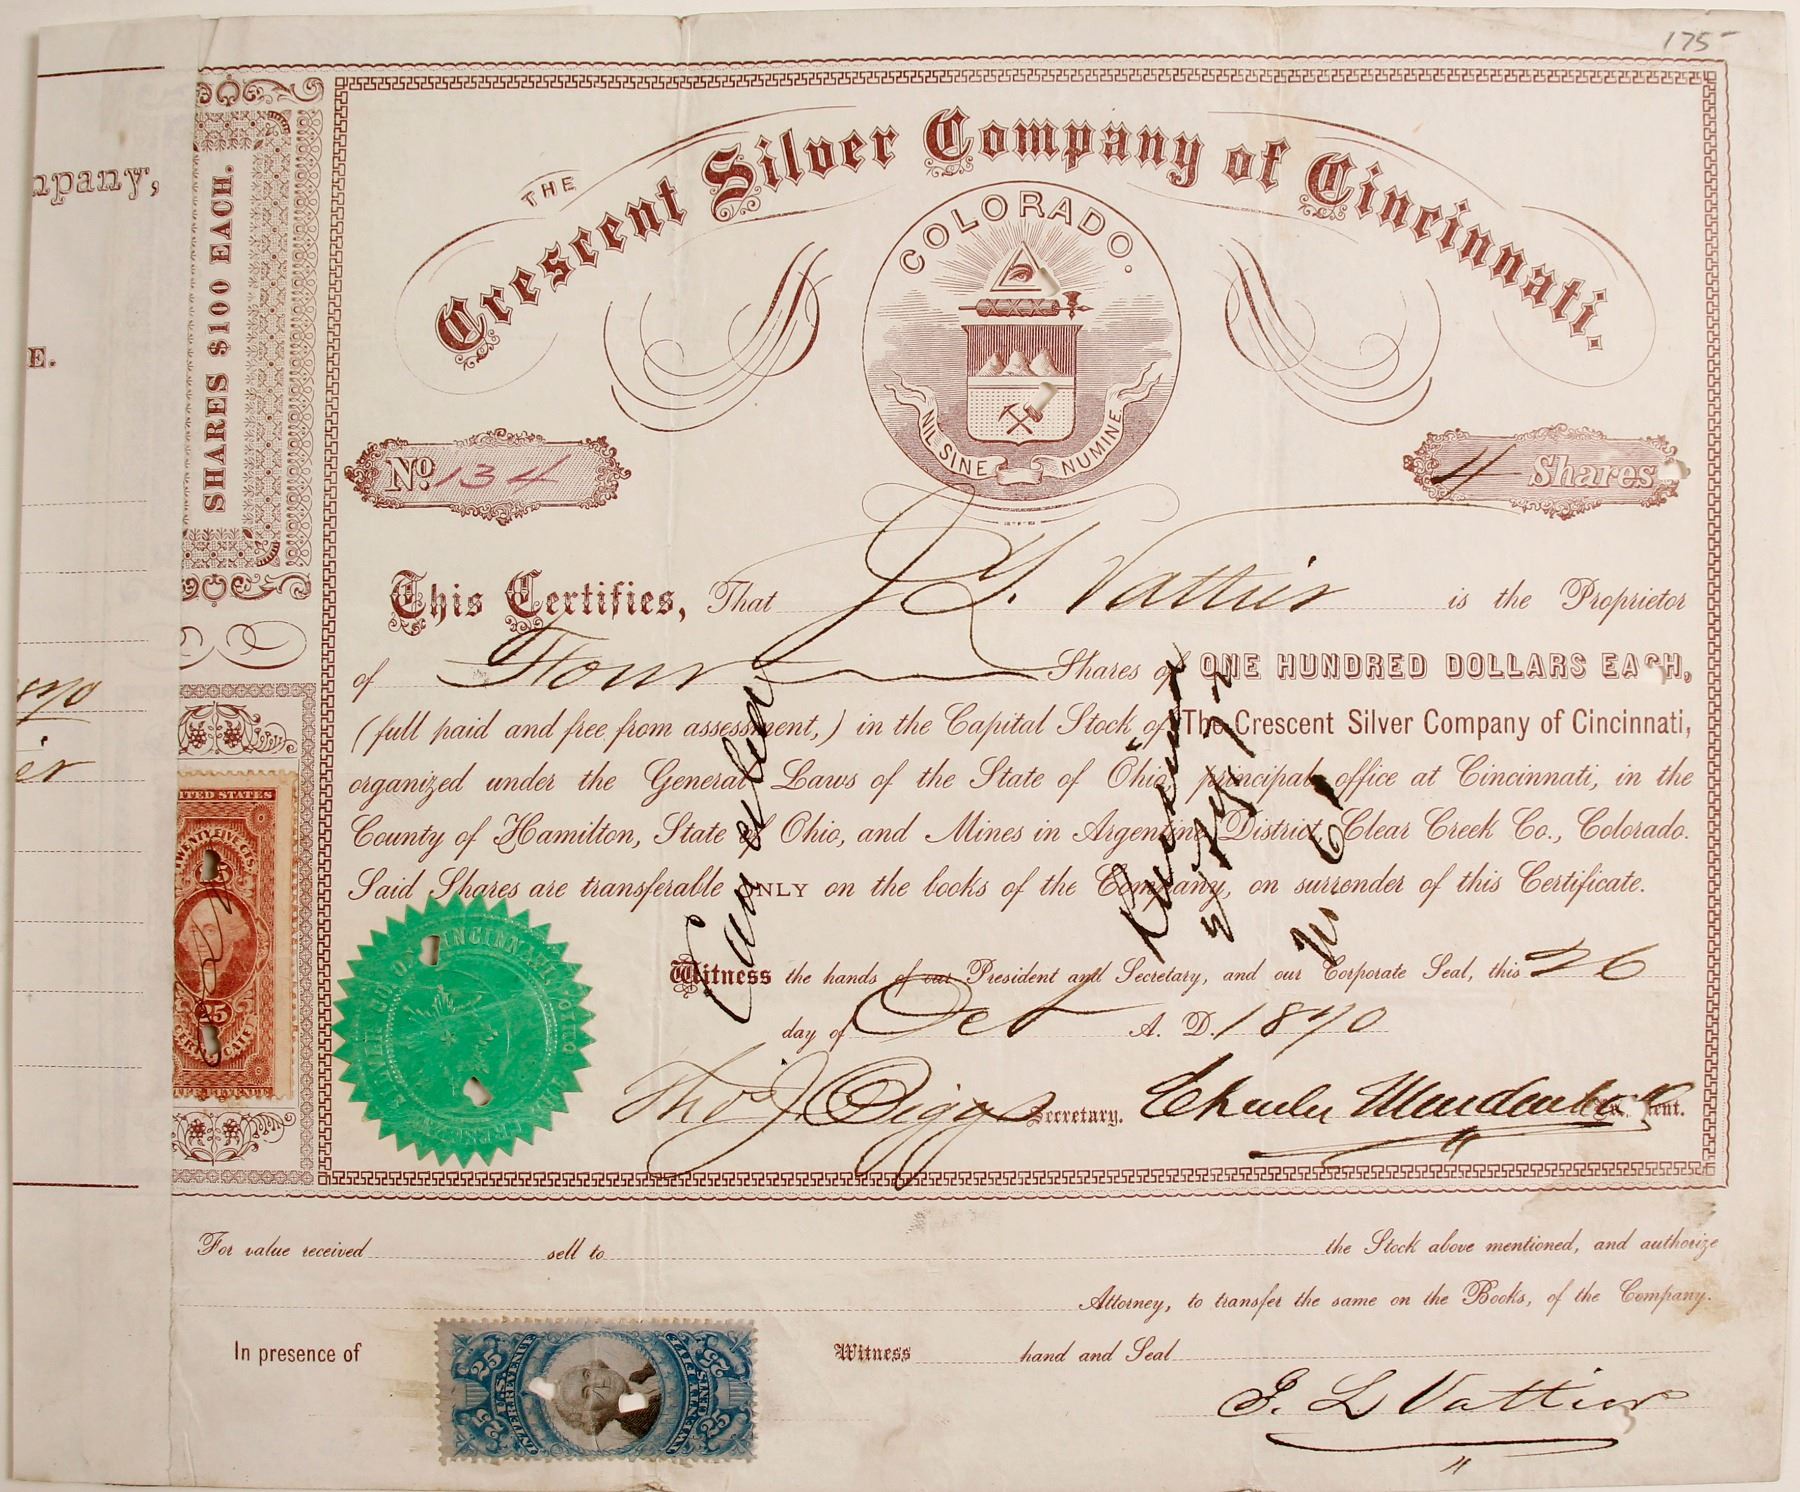 175-
THE
Crescent Silver Company of Cincinnati.
COLORADO.
NIL SINE NUMINE
No. 134
4 Shares
This Certifies, That J. L. Vattier is the Proprietor
of Four Shares of ONE HUNDRED DOLLARS EACH,
(full paid and free from assessment,) in the Capital Stock of The Crescent Silver Company of Cincinnati,
organized under the General Laws of the State of Ohio, principal office at Cincinnati, in the
County of Hamilton, State of Ohio, and Mines in Argentine District, Clear Creek Co., Colorado.
Said Shares are transferable ONLY on the books of the Company, on surrender of this Certificate.
Witness the hands of our President and Secretary, and our Corporate Seal, this 26
day of Oct A. D. 1870
Thos J Biggs Secretary. Charles Mendenhall President.
Cancelled
mpany,
E.
1870
er
SHARES $100 EACH.
UNITED STATES
TWENTY FIVE CTS
25
25
CRESCENT SILVER CO. OF CINCINNATI, OHIO
For value received sell to the Stock above mentioned, and authorize
Attorney, to transfer the same on the Books, of the Company.
In presence of Witness hand and Seal
25 U.S. INTER REVENUE 25
25 25
J. L Vattier